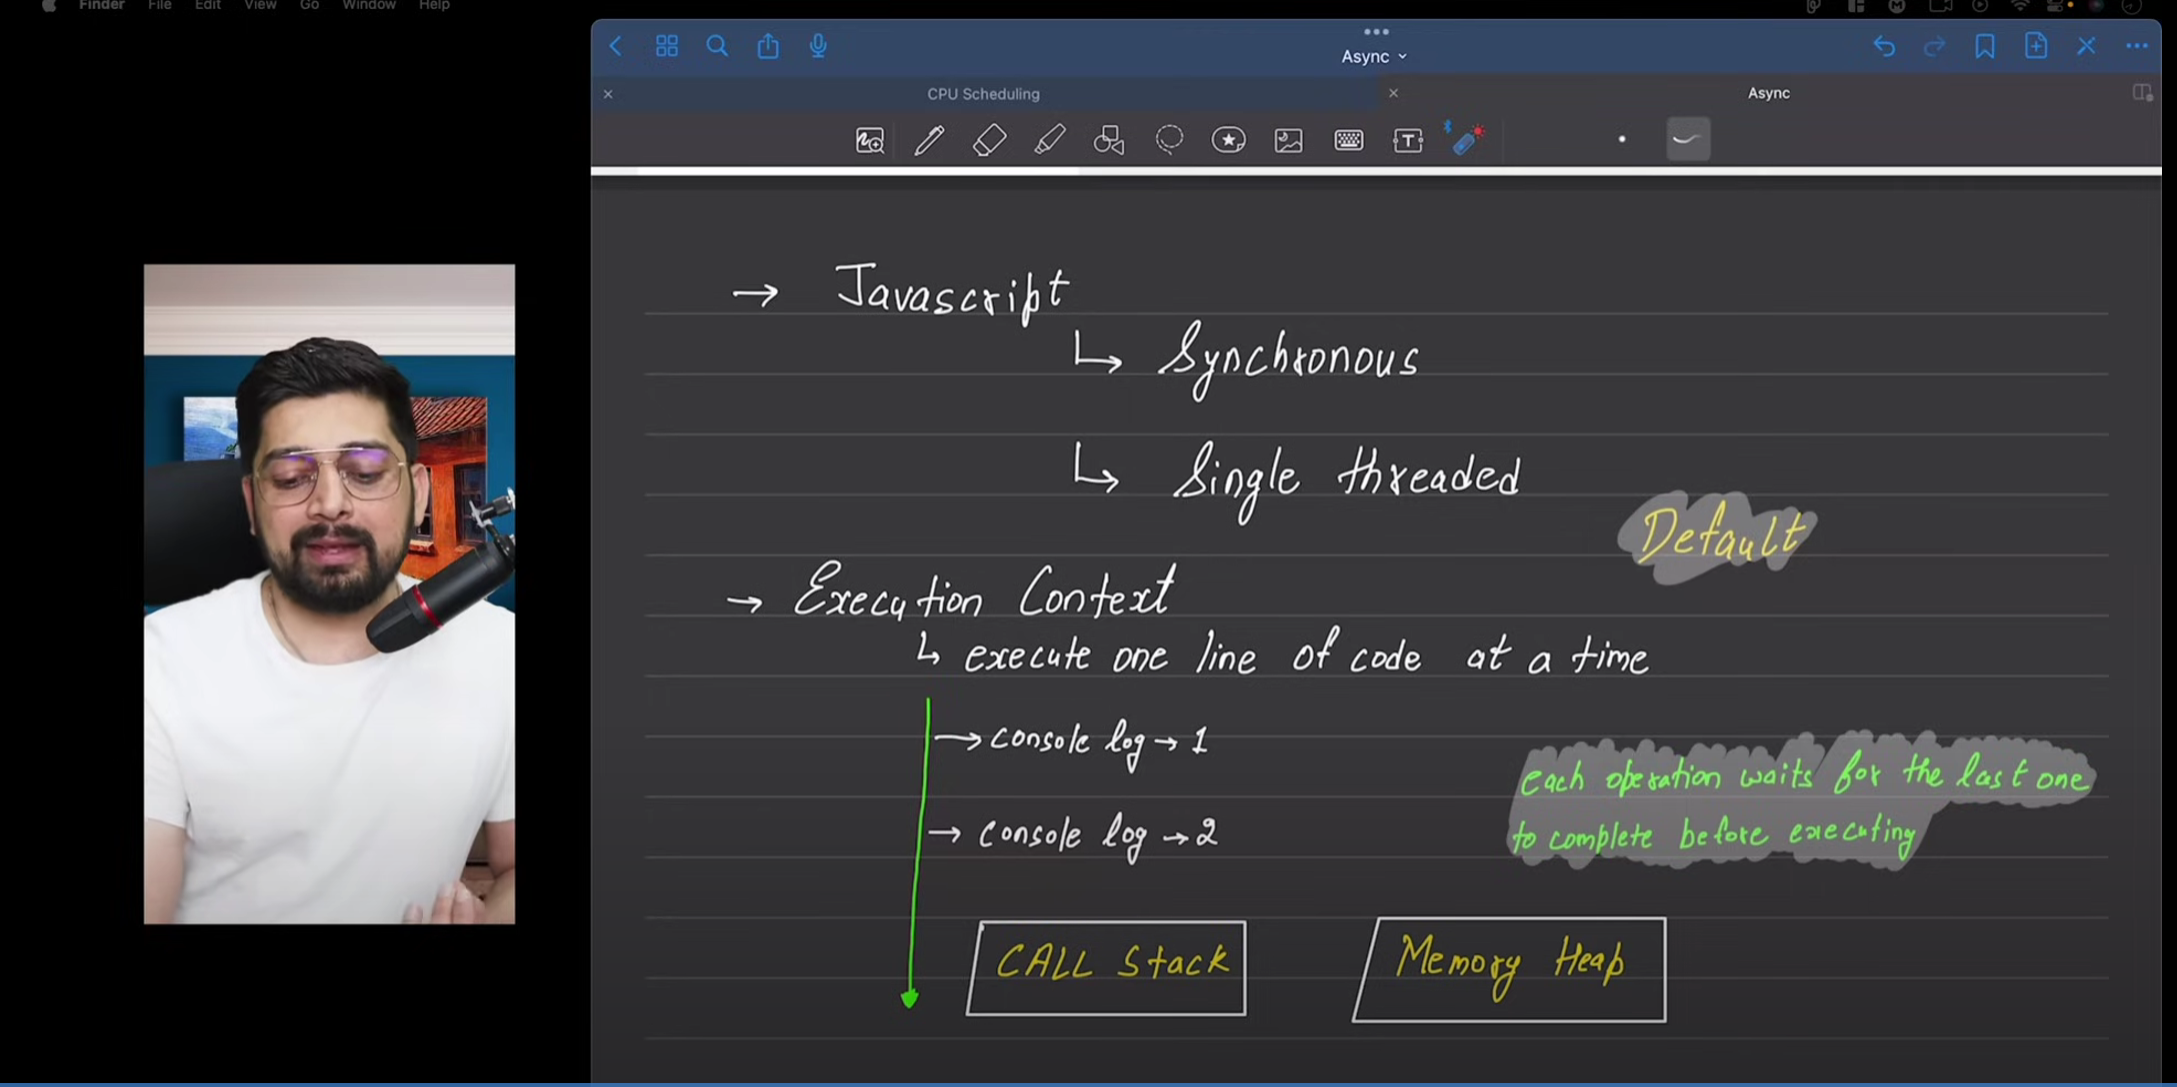 Finder File Edit View Go Window Help
Async
CPU Scheduling
Async
T
→ Javascript
↳ Synchronous
↳ Single threaded
Default
→ Execution Context
↳ execute one line of code at a time
→ console log → 1
each operation waits for the last one
to complete before executing
→ console log → 2
CALL Stack
Memory Heap